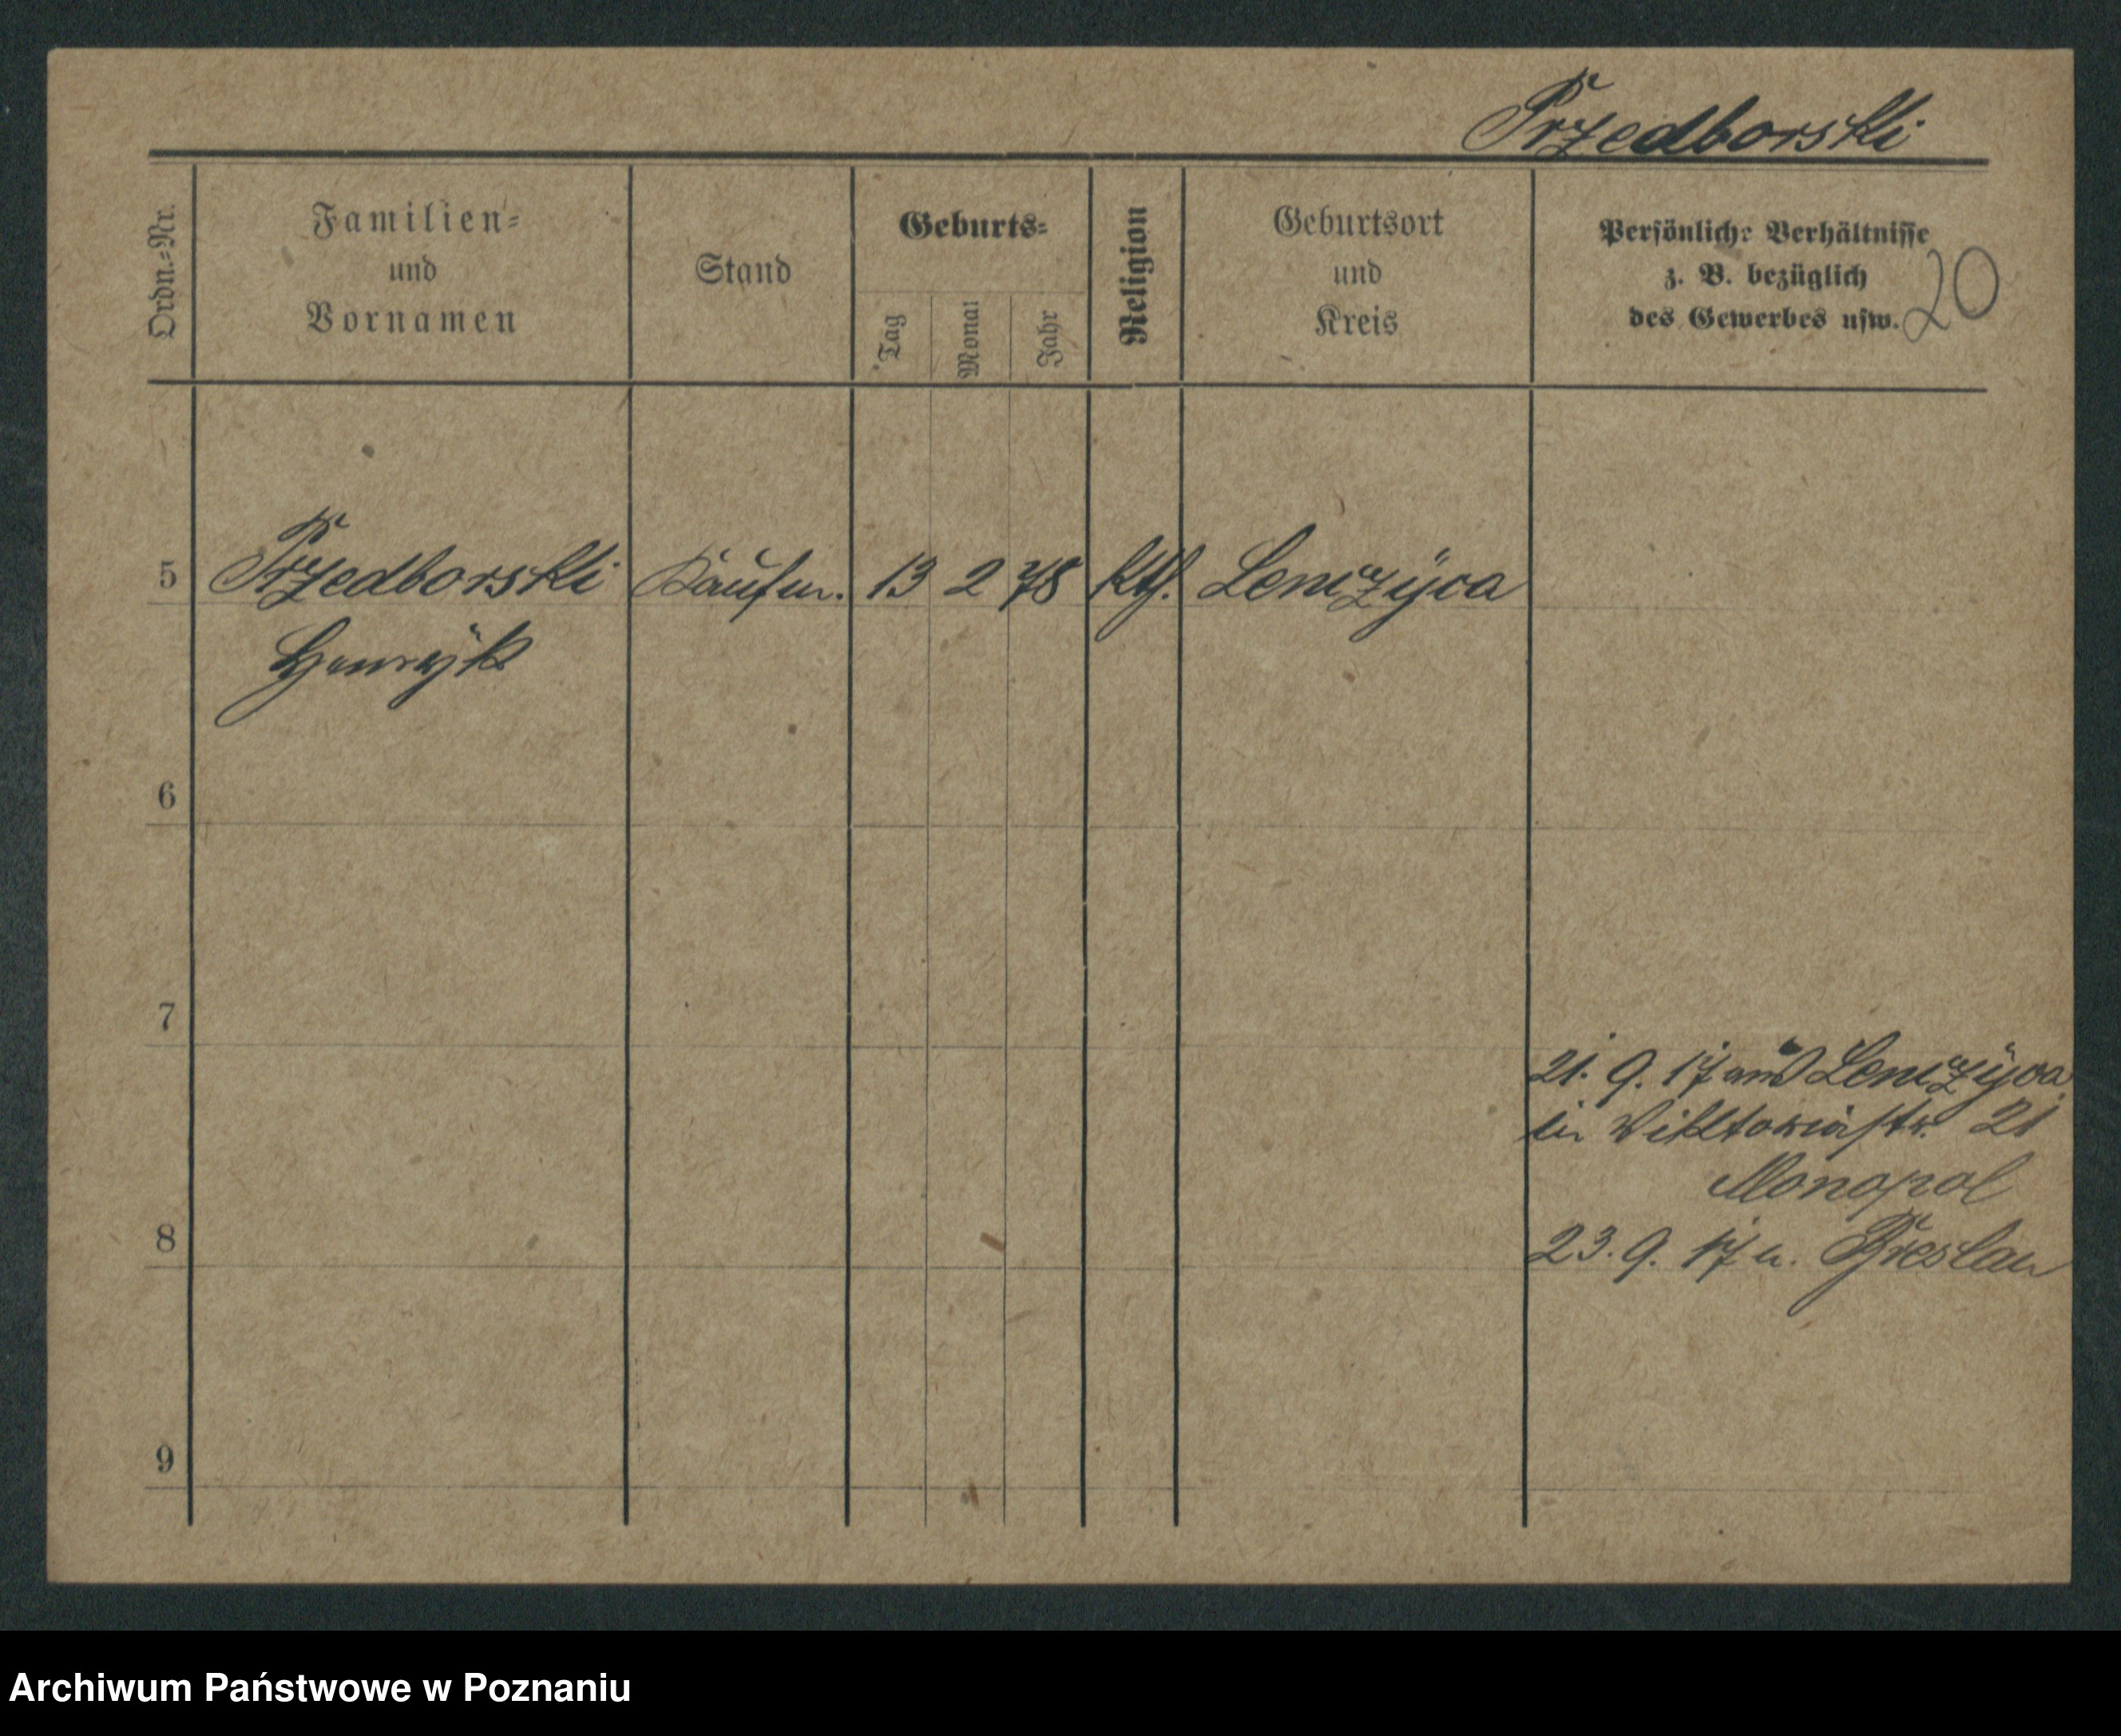 Przedborski
Ordn.-Nr.
Familien-
und
Vornamen
Stand
Geburts-
Tag
Monat
Jahr
Religion
Geburtsort
und
Kreis
Persönliche Verhältnisse
z. B. bezüglich
des Gewerbes usw.
20
5 Przedborski Kaufm. 13 2 78 kth. Lenczÿca
Henrÿk
6
7
21. 9. 17 aus Lenczÿca
in Viktoriastr. 21
Monopol
8
23. 9. 17 n. Breslau
9
Archiwum Państwowe w Poznaniu